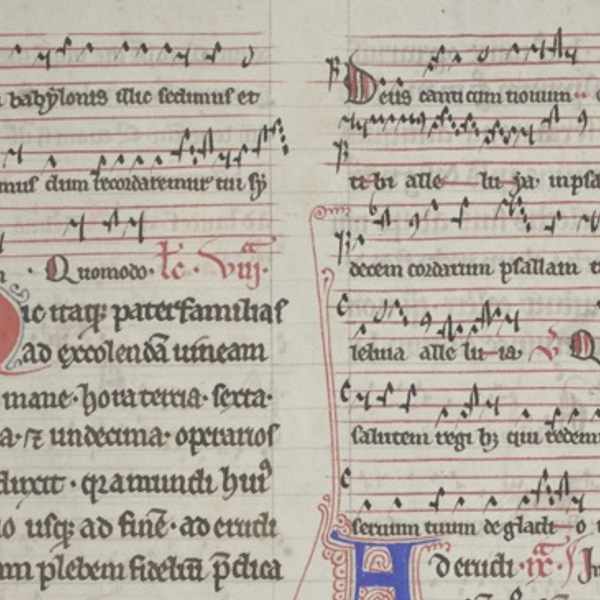 babylonis illic sedimus et
mus dum recordaremur tui sy
n · Quomodo · Lc · viij ·
ic itaq; paterfamilias
ad excolendā uineam
mane · hora tertia · sexta ·
a · 7 undecima · operarios
duxit · q a mundi hui9
o usq; ad finē · ad erudi
plebem fideliū p̄dica
Deus canticum nouum ··
ti bi alle lu ja · in psa
decem cordarum psallam t
leluia alle lu ia · V Q
salutem regi b; qui redem
seruum tuum de gladi o
A
d erudi · ix · In